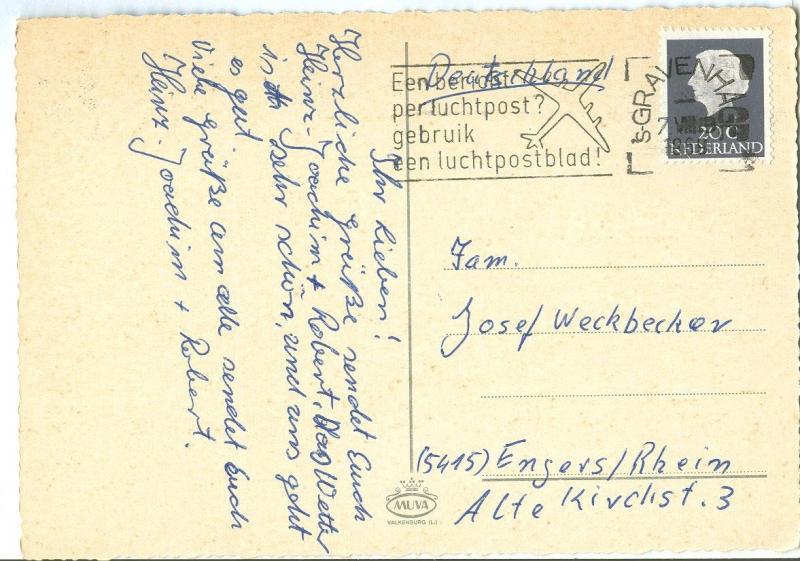 Ihr Lieben!
Herzliche Grüße sendet Euch
Heinz-Joachim + Robert. Das Wetter
ist sehr schön, und uns geht
es gut.
Viele Grüße an alle sendet Euch
Heinz-Joachim + Robert.
Deutschland
Een bericht
per luchtpost?
gebruik
een luchtpostblad!
'sGRAVENHAGE
7 VIII
20 C
NEDERLAND
Fam.
Josef Weckbecker
(5415) Engers/Rhein
Alte Kirchst. 3
MUVA
VALKENBURG (L.)